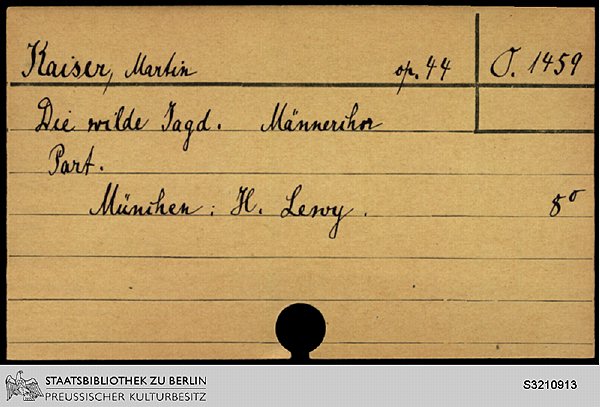 Kaiser, Martin op. 44 O. 1459
Die wilde Jagd. Männerchor
Part.
München: H. Lewy. 8°
STAATSBIBLIOTHEK ZU BERLIN
PREUSSISCHER KULTURBESITZ
S3210913